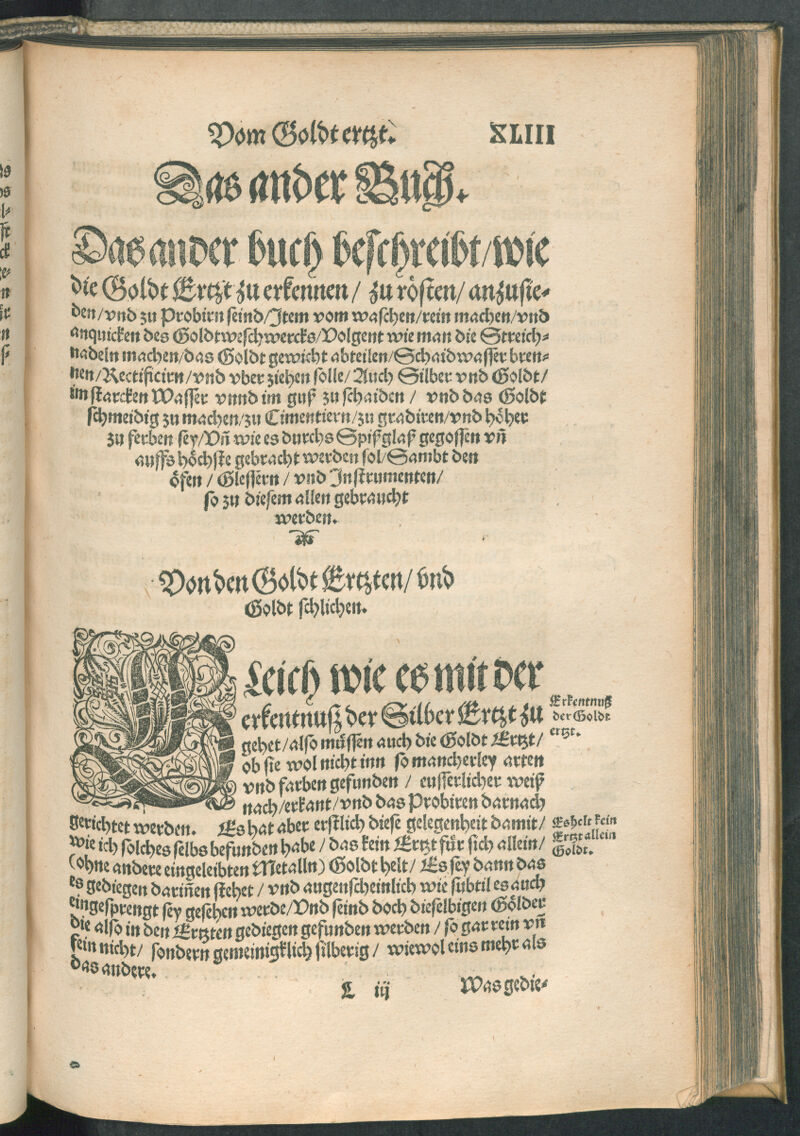 Vom Goldt ertzt. XLIII
Das ander Buch.
Das ander buch beschreibt/wie
die Goldt Ertzt zu erkennen/ zu rösten/ anzusie⸗
den/vnd zu Probirn seind/Item vom waschen/rein machen/vnd
anquicken des Goldtweschwercks/Volgent wie man die Streich⸗
nadeln machen/das Goldt gewicht abteilen/Schaidwasser bren⸗
nen/Rectificirn/vnd vber ziehen solle/Auch Silber vnd Goldt/
im starcken Wasser vnnd im guß zu schaiden / vnd das Goldt
schmeidig zu machen/zu Cimentiern/zu gradiren/vnd höher
zu ferben sey/Vn̄ wie es durchs Spißglaß gegossen vn̄
auffs höchste gebracht werden sol/Sambt den
öfen / Glessern / vnd Instrumenten/
so zu diesem allen gebraucht
werden.
Von den Goldt Ertzten/ vnd
Goldt schlichen.
Gleich wie es mit der
erkentnuß der Silber Ertzt zu
gehet/also müssen auch die Goldt Ertzt/
ob sie wol nicht inn so mancherley arten
vnd farben gefunden / eusserlicher weiß
nach/erkant/vnd das Probiren darnach
gerichtet werden. Es hat aber erstlich diese gelegenheit damit/
wie ich solches selbs befunden habe / das kein Ertzt für sich allein/
(ohne andere eingeleibten Metalln) Goldt helt/ Es sey dann das
es gediegen darinen̄ stehet / vnd augenscheinlich wie subtil es auch
eingesprengt sey gesehen werde/Vnd seind doch dieselbigen Gölder
die also in den Ertzten gediegen gefunden werden / so gar rein vn̄
fein nicht/ sondern gemeinigklich silberig / wiewol eins mehr als
das andere.
Erkentnuß
der Goldt
ertzt.
Es helt kein
Ertzt allein
Goldt.
L iij Was gedie⸗